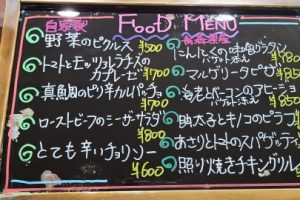 FOOD MENU
自家製
野菜のピクルス
¥500
トマトとモッツァレラチーズの
カプレーゼ ¥700
真鯛のピリ辛カルパッチョ
¥700
ローストビーフのシーザーサラダ
¥800
とても辛いチョリソー
¥600
にんにくの味噌グラタン
バケット添え
マルゲリータピザ
海老とベーコンのアヒージョ
バケット添え
明太子とキノコのピラフ
あさりとトマトのスパゲッティ
照り焼きチキングリル